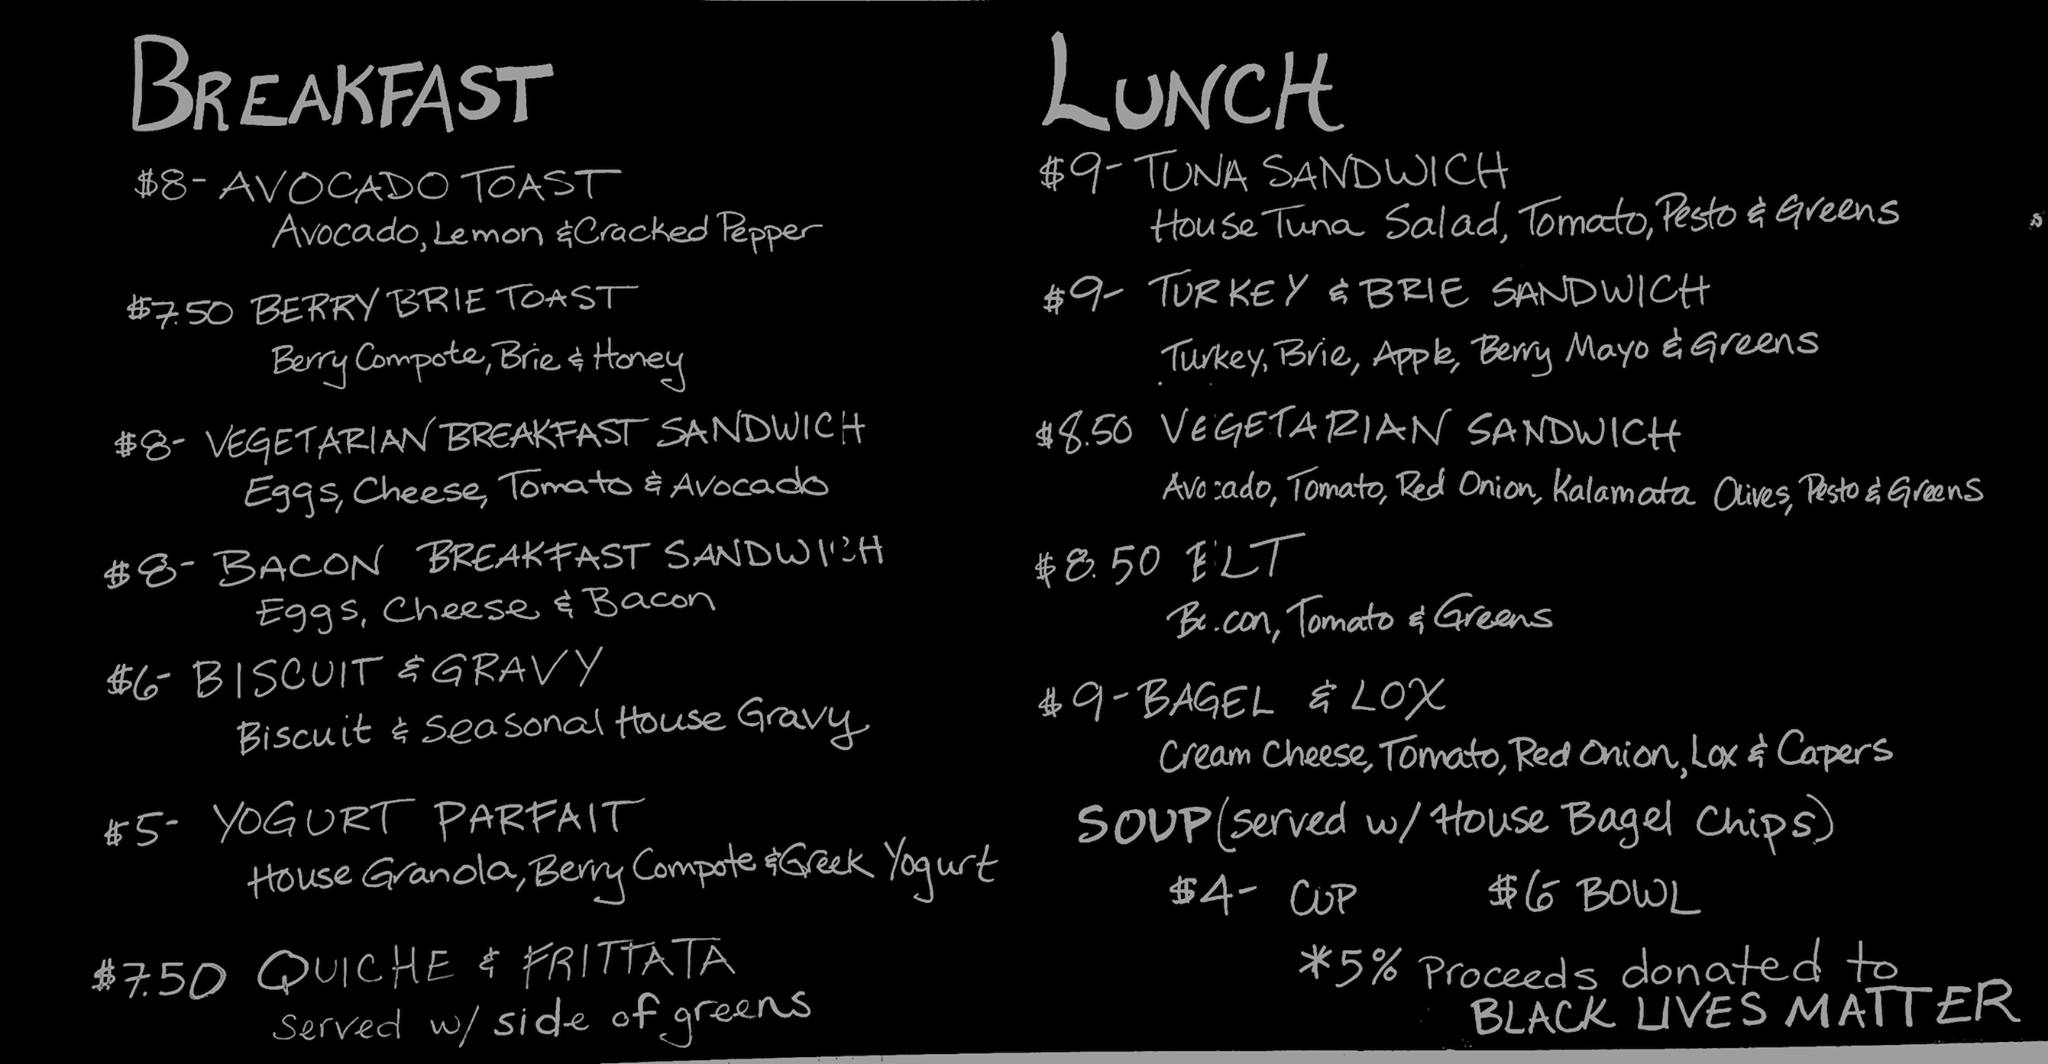 BREAKFAST
$8- AVOCADO TOAST
Avocado, Lemon & Cracked Pepper
$7.50 BERRY BRIE TOAST
Berry Compote, Brie & Honey
$8- VEGETARIAN BREAKFAST SANDWICH
Eggs, Cheese, Tomato & Avocado
$8- BACON BREAKFAST SANDWICH
Eggs, Cheese & Bacon
$6- BISCUIT & GRAVY
Biscuit & Seasonal House Gravy
$5- YOGURT PARFAIT
House Granola, Berry Compote & Greek Yogurt
$7.50 QUICHE & FRITTATA
Served w/ side of greens
LUNCH
$9- TUNA SANDWICH
House Tuna Salad, Tomato, Pesto & Greens
$9- TURKEY & BRIE SANDWICH
Turkey, Brie, Apple, Berry Mayo & Greens
$8.50 VEGETARIAN SANDWICH
Avocado, Tomato, Red Onion, Kalamata Olives, Pesto & Greens
$8.50 BLT
Bacon, Tomato & Greens
$9- BAGEL & LOX
Cream Cheese, Tomato, Red Onion, Lox & Capers
SOUP (served w/ House Bagel Chips)
$4- CUP $6 BOWL
*5% Proceeds donated to
BLACK LIVES MATTER